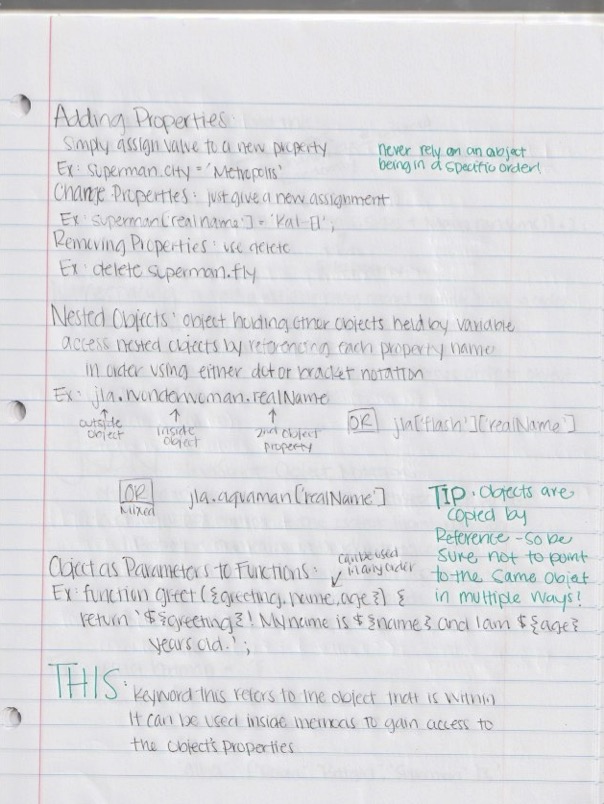 Adding Properties:
simply assign value to a new property
never rely on an object
being in a specific order!
Ex: superman.city = 'Metropolis'
Change Properties: just give a new assignment
Ex: superman['realname'] = 'Kal-El';
Removing Properties: use delete
Ex: delete superman.fly
Nested Objects: object holding other objects held by variable
access nested objects by referencing each property name
in order using either dot or bracket notation
Ex: jla.wonderwoman.realName
outside object
inside object
2nd object property
OR jla['flash']['realName']
OR Mixed jla.aquaman['realName']
TIP: Objects are
copied by
Reference - so be
sure not to point
to the same Object
in multiple ways!
Object as Parameters to Functions:
can be used
in any order
Ex: function greet ({greeting, name, age}) {
return `${greeting}! My name is ${name} and I am ${age}
years old.`;
THIS: Keyword this refers to the object that is within
It can be used inside methods to gain access to
the object's properties